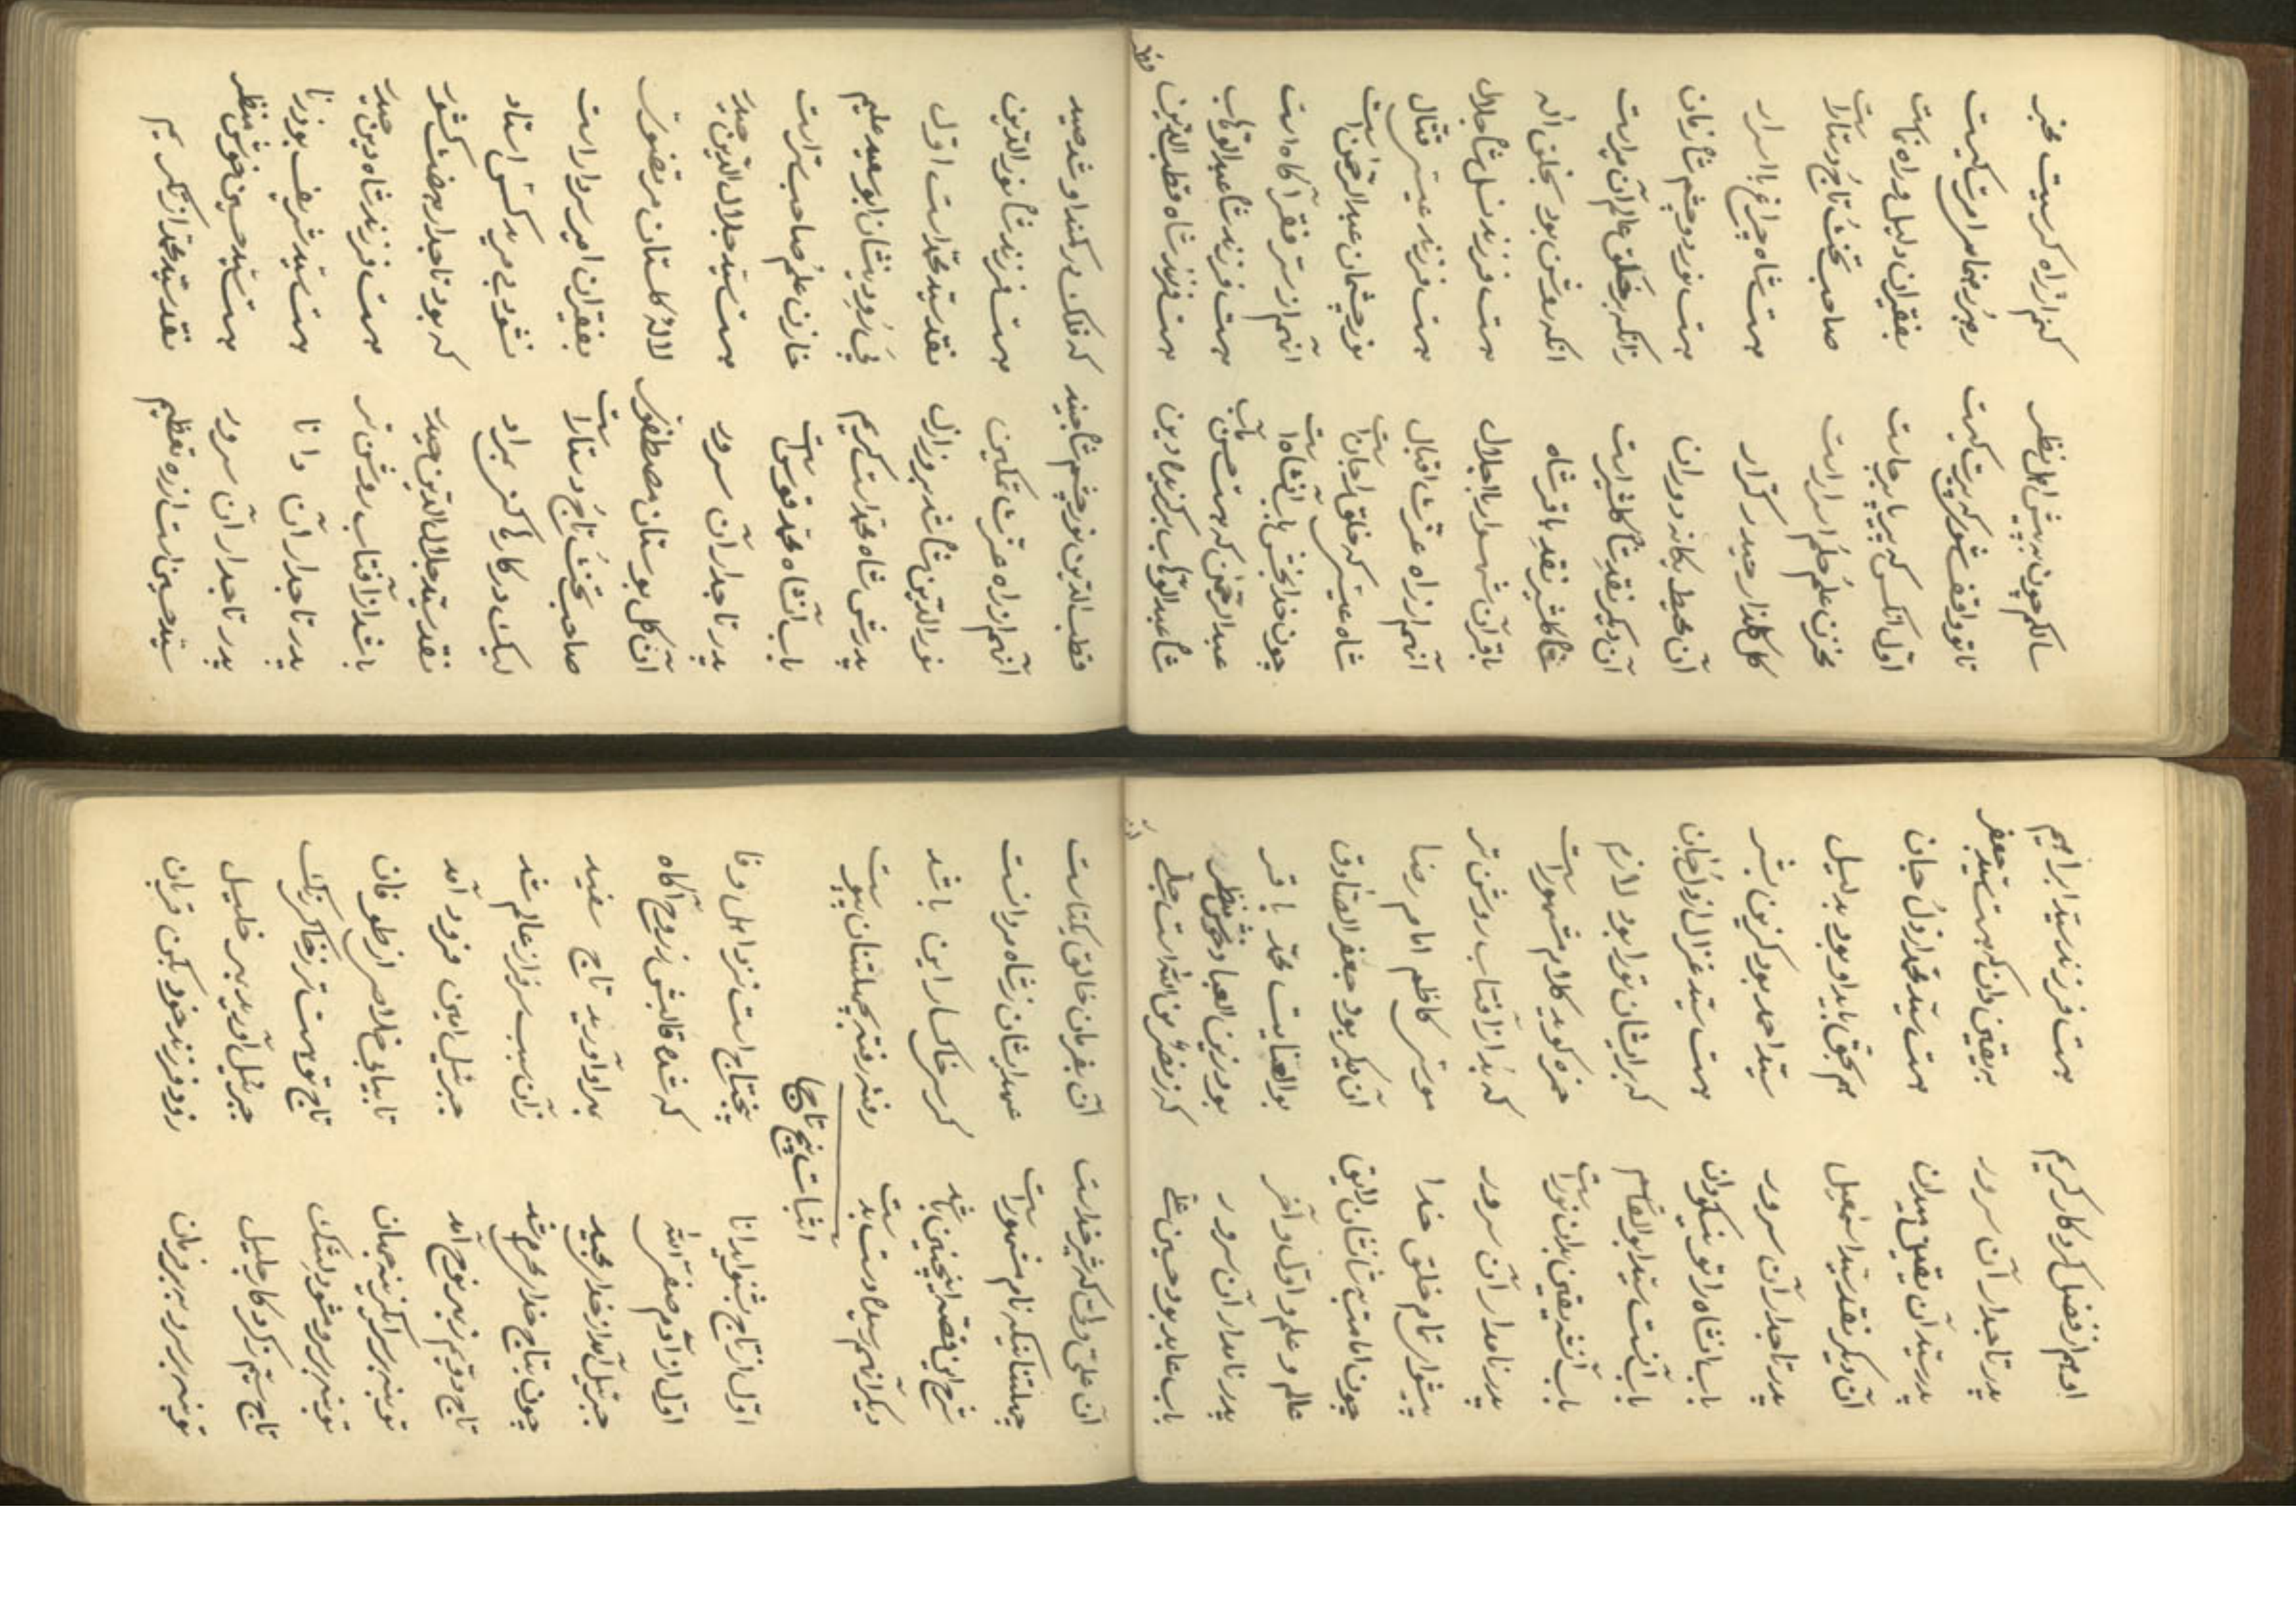 سالکم چون بپیش اهل نظر کنم از راه کسریت مخبر
تا تو واقف شوی که پیرت کیست رهبر رهنما مرادت کیست
اول آنکس که پیر پا برجاست بفقیران دلیل و راه نماست
مخزن علم حلم اسرار است صاحب تخت تاج دستار است
گل گلزار حیدر کرار هست شاه چراغ با اسرار
آن محیط یگانه دوران هست نور دو چشم شاه زمان
آن دیگر نقد شاه گلشیر است زانکه بر خلق عالم آن میر است
شاه گلشیر نقد باقر شاه آنکه روشن بود بخلق اله
باقر آن شهسوار با اجلال هست فرزند نسل شاه جلال
آنهم از راه عزت اقبال هست فرزند عیسی قتال
شاه عیسی که خلق را جانست نور چشمان عبدالرحمن است
چون خدابخش باب آنشاه است آنهم از سر فقر آگاه است
عبدالرحمن که هست حسن مآب هست فرزند شاه عبدالوهاب
شاه عبدالوهاب برگزیده دین هست فرزند شاه قطب الدین
قطب الدین نور چشم شاه جنید که فلک در کمند او شد صید
آنهم از راه عزت تمکین هست فرزند شاه نورالدین
نورالدین شاه شد بروز ازل نقد سید محمد است اول
پدرش شاه محمد است کریم ابو سعید علیم
باب آنشاه محمد قدوس است خازن علم صاحب
پدر تاجدار آن سرور هست سید جلال الدین حیدر
آن گل بوستان مصطفوی لاله گلستان مرتضوی
صاحب تخت تاج دستار است بفقیران امیر سردار است
لیک در کار نشوی مرید کس استاد
نقد سید جلال الدین حیدر که بود تاجدار هفت کشور
باشد از آفتاب روشن تر هست فرزند شاه دین حیدر
پدر تاجدار آن دانا هست سید شریف
پدر تاجدار آن سرور هست سید حسین خوش منظر
سید حسین است از ره تعظیم نقد سید محمد از تکریم
او هم از فضل کردگار کریم هست فرزند سید ابراهیم
پدر تاجدار آن سرور به یقین دان که هست سید جعفر
پدر سید آن یقین میدان هست سید محمد از دل جان
آن دیگر نقد سید اسمعیل هم بحق باید او بود بدلیل
پدر تاجدار آن سرور سید احمد بود گزین بشر
باب آنشاه را تو نیکو دان هست سید غزال از دل جان
باب آنست سید ابوالقاسم که بر ایشان تو را بود لازم
باب آنشه یقین بدان نور است حمزه گوید کلام مشهور است
پدر نامدار آن سرور که بد از آفتاب روشن تر
پیشوای تمام خلق خدا موسی کاظم امام رضا
چون امامت نشان لایق آن دیگر بود جعفر الصادق
عالم و علم و اول و آخر محمد باقر
پدر نامدار آن سرور بود زین العباد خوش منظر
باب عابد بود حسین علی که ز نصر من الله است جلی
آن علی ولی که شیر خداست آن بفرمان خالق یکتاست
چهلتنانیکه نام مشهور است
شرح این قصه اینچنین باشد گر سر خاکسار این باشد
اثبات پنج تاج
اول از تاج بشنو ای دانا پنج تاج است نزد اهل وفا
اول از آدم صفی الله که شده قالبش ز روح آگاه
جبرئیل آمد از خدای مجید بهر او آورید تاج سفید
چون بتاج خدای محرم شد زان سبب سرفراز عالم شد
تاج دویم ز بهر نوح آمد جبرئیل امین فرود آمد
تو بنه بر سر ای گزین جهان تا بیابی خلاصی از طوفان
تاج سیم ز کردگار جلیل جبرئیل آورید بهر خلیل
تو بنه بر سر و ببر فرمان زود فرزند خود بکن قربان